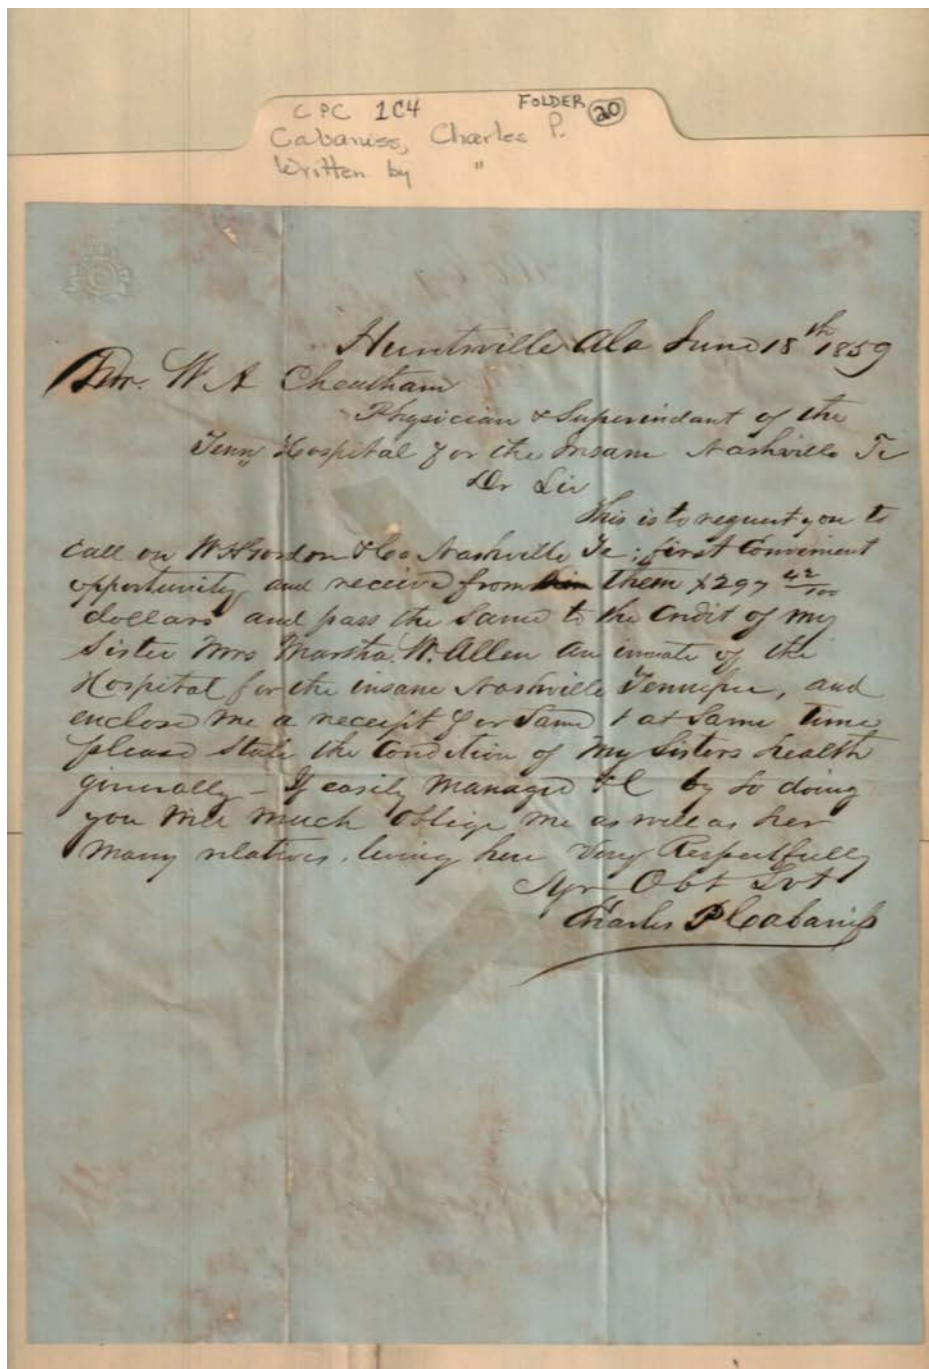 CPC 1C4 FOLDER 20
Cabaniss, Charles P.
Written by "
Huntsville Ala June 18th 1859
W. A Cheatham
Physician & Superindant of the
Tenn Hospital for the Insane Nashville Te
Dr Sir
This is to request you to
call on W H Gordon & Co Nashville Te; first Convenient
opportunity and receive from him them $297 42/100
dollars and pass the Same to the Credit of my
Sister Mrs Martha. W. Allen an inmate of the
Hospital for the insane Nashville Tennessee, and
enclose me a receipt for Same & at Same time
please State the Condition of My Sisters health
generally - If easily Managed &C by So doing
you will much Oblige me as well as her
Many relatives, living here Very Respectfully
Yr Obt Svt
Charles P Cabaniss